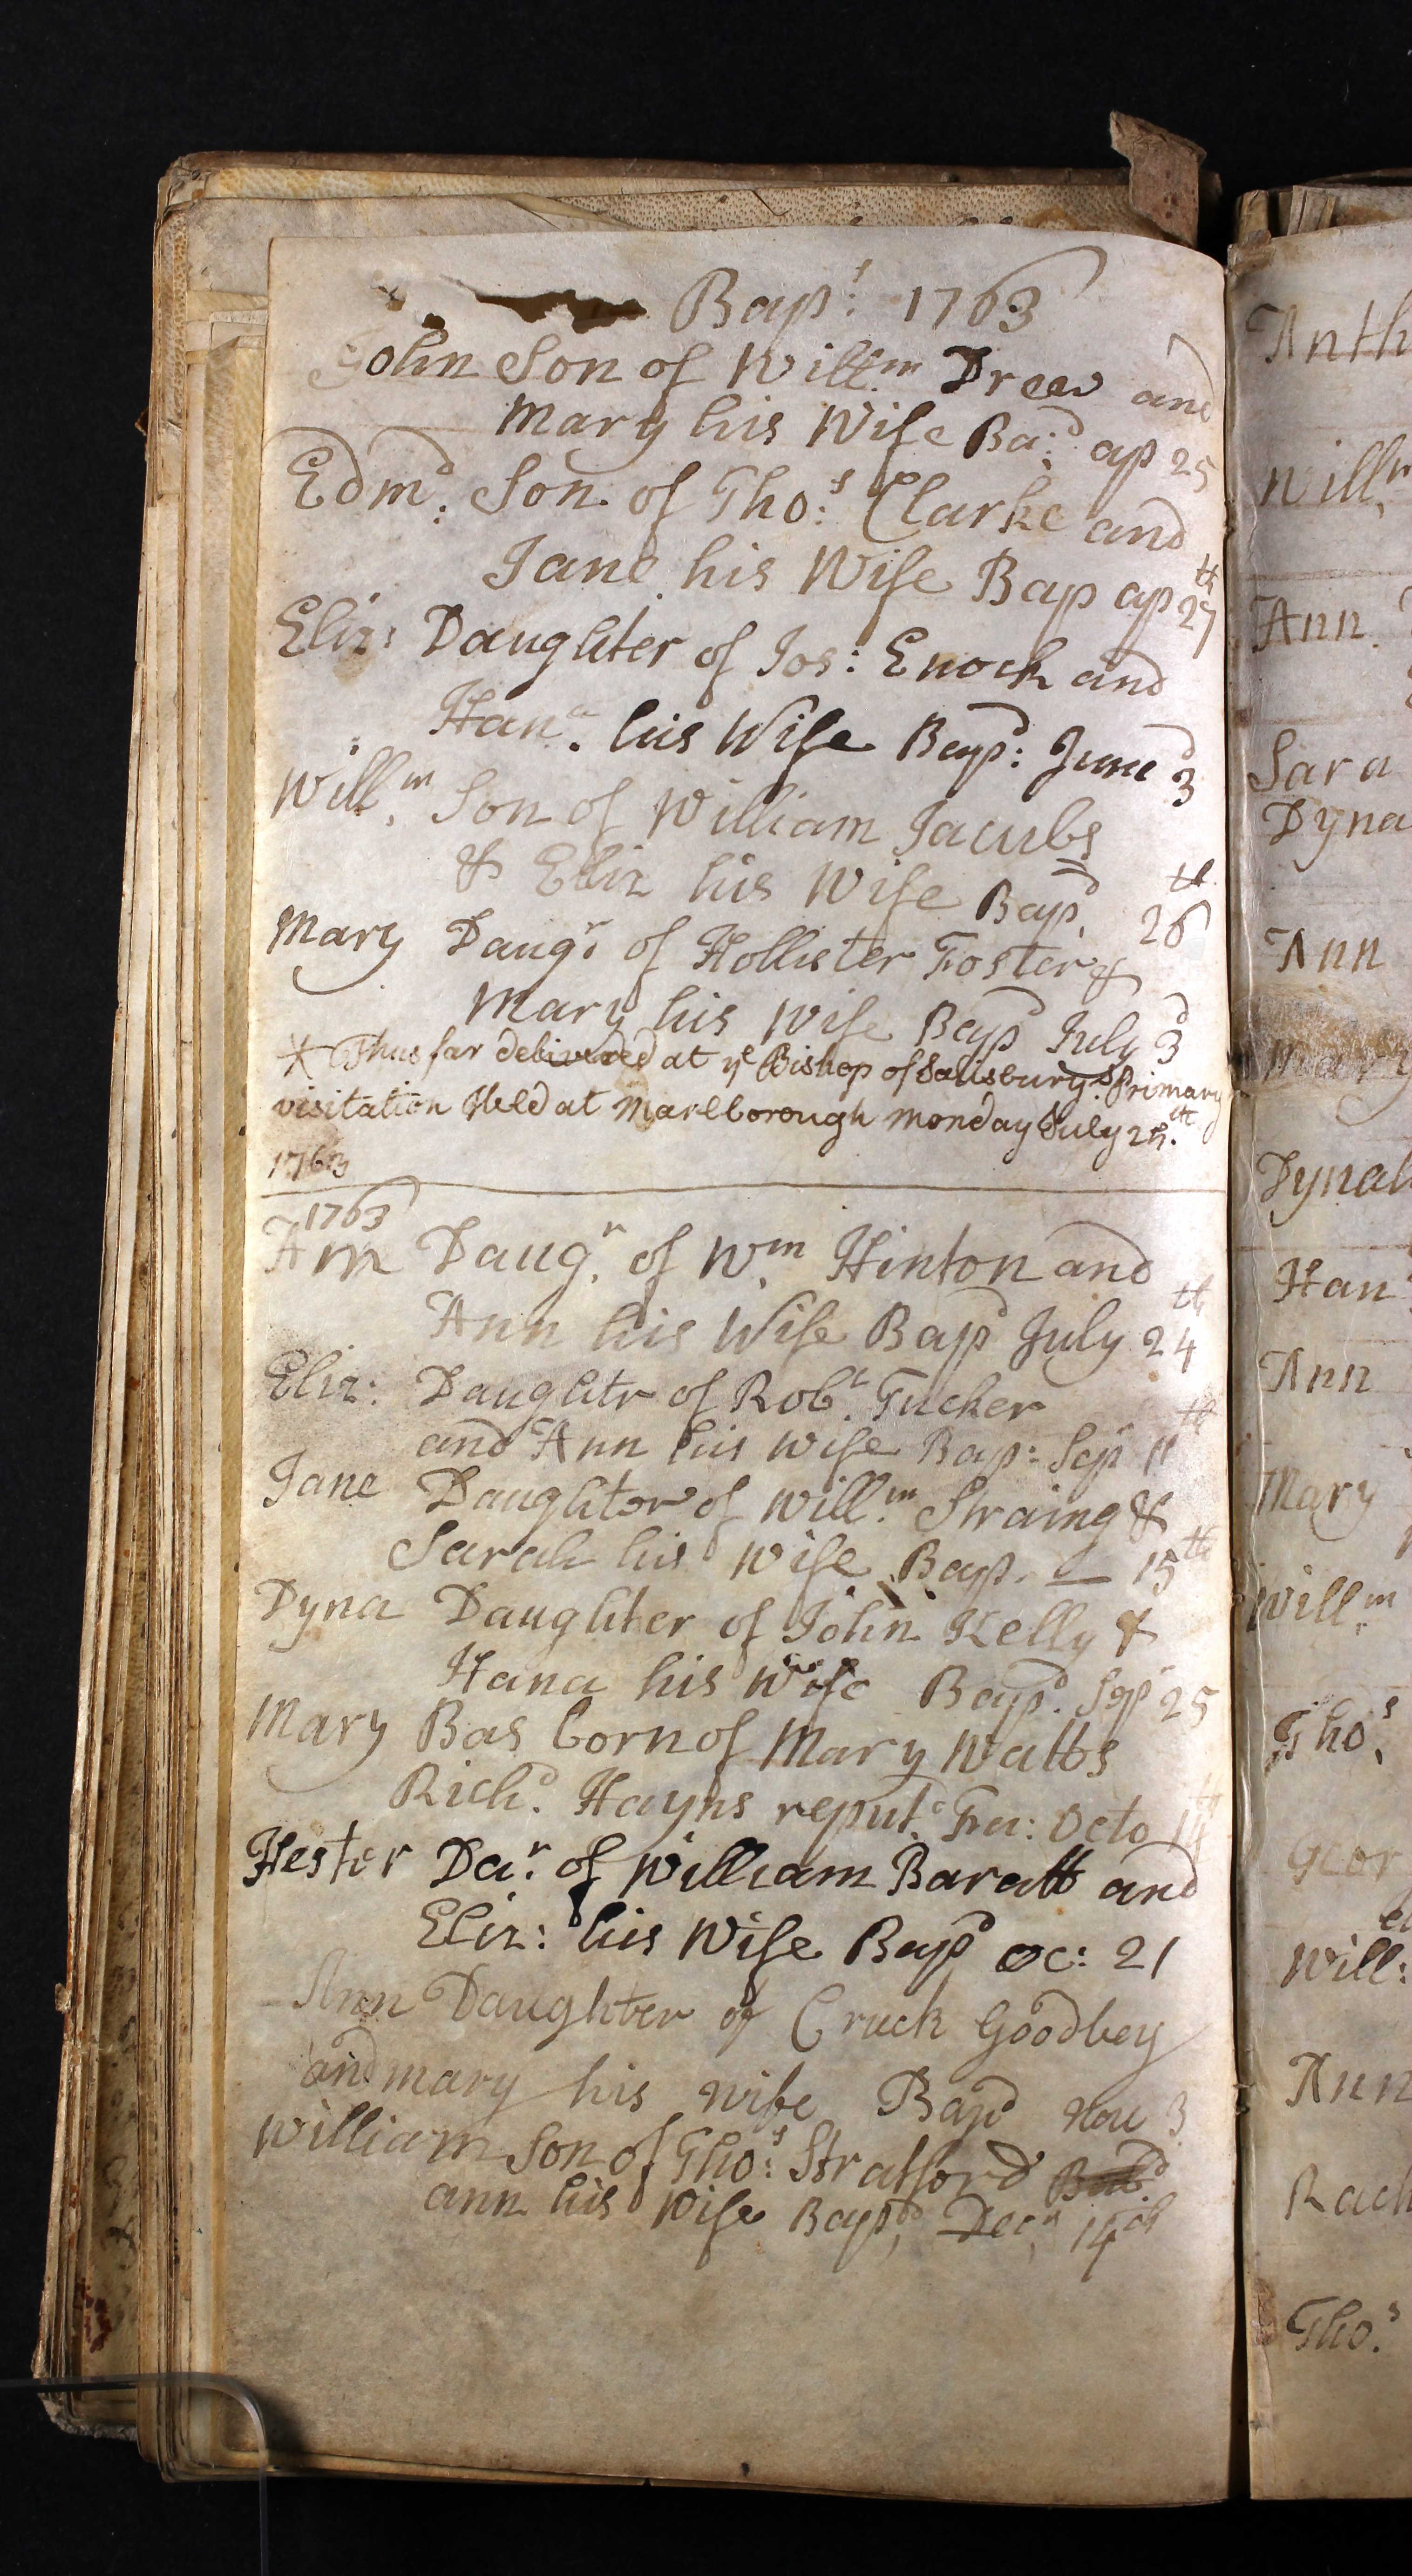 Bap.t 1763
John Son of Willm Drew and
Mary his Wife Ba:d ap 25
Edm:d Son of Tho:s Clarke and
Jane his Wife Bap ap 27th
Eliz: Daughter of Jos: Enock and
Han.a his Wife Bap:d June 3d
Will.m Son of William Jacubs
& Eliz his Wife Bap.d 26th
Mary Daug.r of Hollister Foster &
Mary his Wife Bapd July 3d
* Thus far delivered at ye Bishop of Salisbury's Primary
visitation Held at Marlborough monday July 25.th
1763
1763
Ann Daug.r of W.m Hinton and
Ann his Wife Bapd July 24th
Eliz: Daughtr of Rob.t Tucker
and Ann his Wife Bap: Sepr 11th
Jane Daughter of Will.m Straing &
Sarah his Wife Bap. — 15th
Dyna Daughter of John Kelly &
Hana his Wife Bap.d Sepr 25
Mary Bas born of Mary Watts
Rich.d Hayns reput.d Fa: Octo
Hester Da.r of William Baratt and
Eliz: his Wife Bapd oc: 21
Ann Daughter of Cruck Goodbey
and mary his wife Bapd Nov 3
William Son of Tho:s Stratford
ann his Wife Bap.d Dec.r 14th
Anth
Will.m
Ann
Sara
Dyna
Ann
Mary
Dynah
Han
Ann
Mary
Will.m
Tho.s
Geor
Will:
Ann
Rach
Tho.s